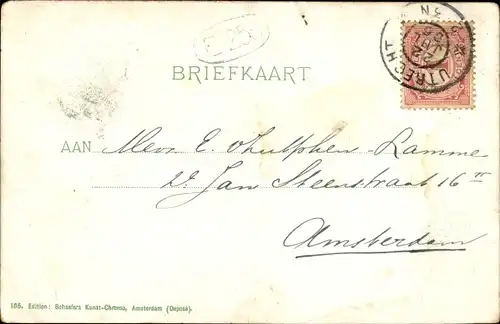 E 25
BRIEFKAART
UTRECHT
AAN Mevr. E.
Jan Steenstraat 16 II
Amsterdam
186. Edition: Schaefers Kunst-Chromo, Amsterdam (Deposé).